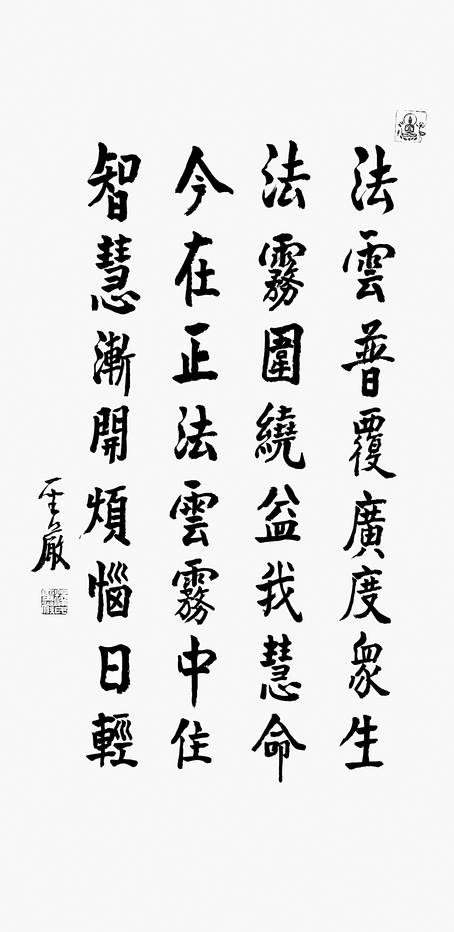 法雲普覆廣度衆生
法霧圍繞益我慧命
今在正法雲霧中住
智慧漸開煩惱日輕
聖嚴